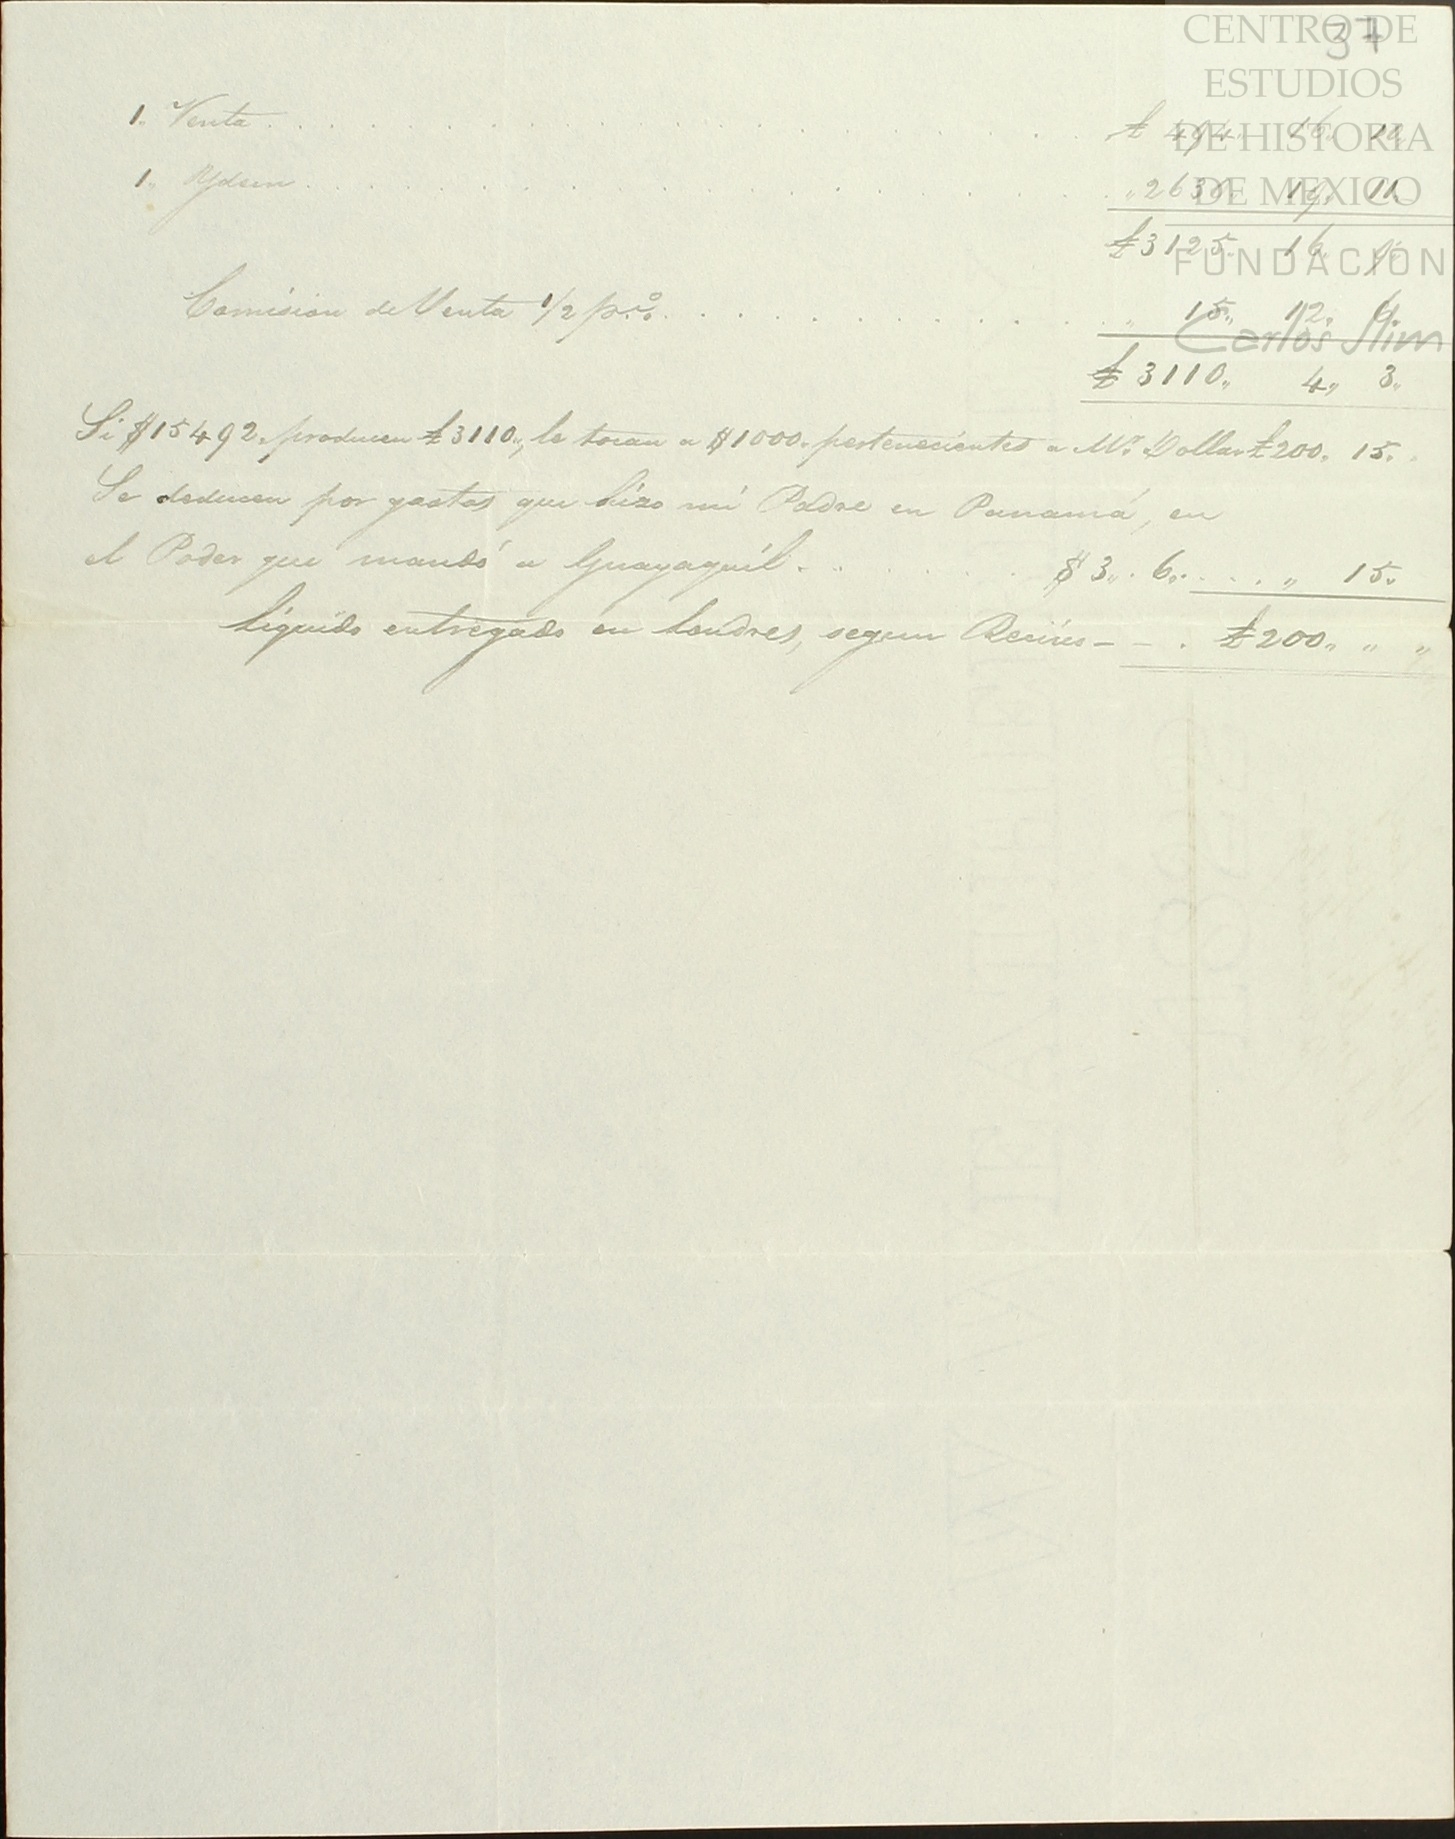 37
CENTRO DE
ESTUDIOS
DE HISTORIA
DE MEXICO
FUNDACIÓN
Carlos Slim
1. Venta . . . . . £ 494,, 16,, 10
1. Ydem . . . . . ,, 2630,, 19,, 11
£3125,, 16,, 9
Comision de Venta 1/2 p.r% . . . . . ,, 15,, 12,, 6
£ 3110,, 4,, 3,,
Si $15492. producen £3110,, le tocan a $1000. pertenecientes a Mr. Dollar £200,, 15.
Se deducen por gastos que hizo mi Padre en Panamá, en
el Poder que mandó a Guayaquíl . . . . . $ 3,, 6. . . . . ,, 15.
Líquido entregado en Londres, segun Recivo - - . £200,, ,, ,,